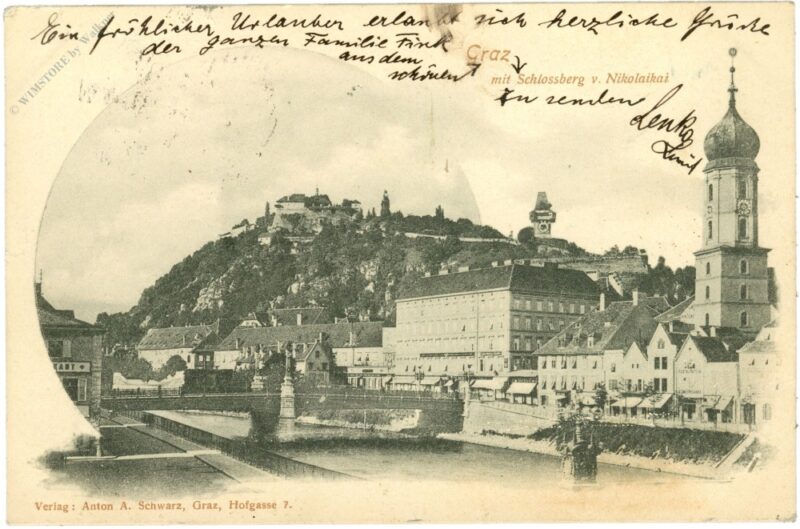 Ein fröhlicher Urlauber erlaubt sich herzliche Grüße
der ganzen Familie Fink
aus dem
schönen
Graz
mit Schlossberg v. Nikolaikai
zu senden
© WIMSTORE by
Verlag: Anton A. Schwarz, Graz, Hofgasse 7.